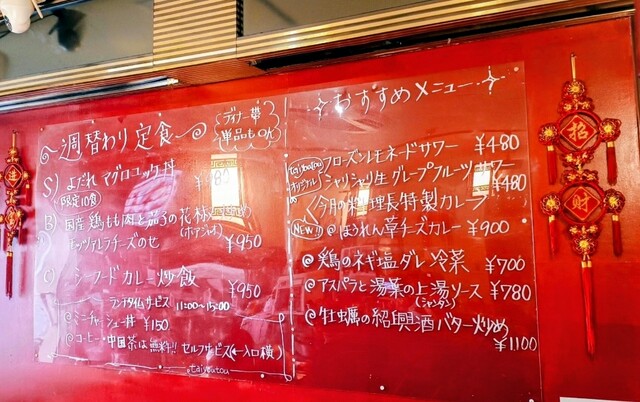 週替わり定食
ディナー帯
単品もOK
S) よだれマグロユッケ丼
限定10食
B) 国産鶏もも肉と茄子の花椒
(ホアジャオ)
モッツァレラチーズのせ ¥950
C) シーフードカレー炒飯 ¥950
ランチタイムサービス 11:00〜15:00
@ミニチャーシュー丼 ¥150
@コーヒー・中国茶は無料!! セルフサービス(←入口横)
taiyoutou
おすすめメニュー
taiyoutou
オリジナル
フローズンレモネードサワー ¥480
シャリシャリ生グレープフルーツサワー ¥480
今月の料理長特製カレー
NEW!! @ほうれん草チーズカレー ¥900
@鶏のネギ塩ダレ冷菜 ¥700
@アスパラと湯葉の上湯ソース ¥780
(シャンタン)
@牡蠣の紹興酒バター炒め
¥1,100
招
財
進